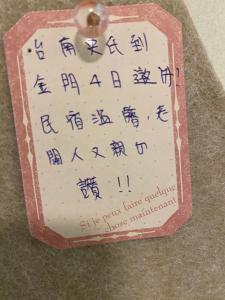 台南宋氏到
金門4日遊!
民宿溫馨,老
闆人又親切
讚!!
Si je peux faire quelque
chose maintenant